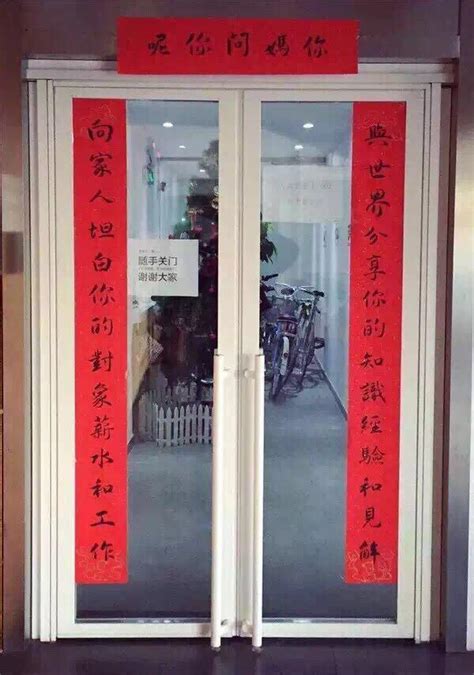 你媽問你呢
與世界分享你的知識經驗和見解
向家人坦白你的對象薪水和工作
随手关门
谢谢大家